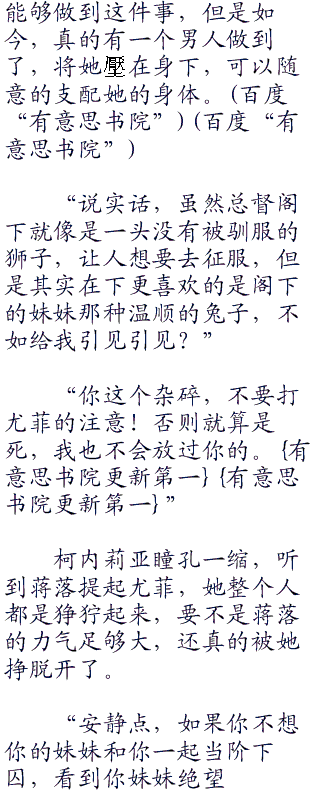 能够做到这件事，但是如
今，真的有一个男人做到
了，将她壓在身下，可以随
意的支配她的身体。(百度
“有意思书院”)(百度“有
意思书院”)
“说实话，虽然总督阁
下就像是一头没有被驯服的
狮子，让人想要去征服，但
是其实在下更喜欢的是阁下
的妹妹那种温顺的兔子，不
如给我引见引见？”
“你这个杂碎，不要打
尤菲的注意！否则就算是
死，我也不会放过你的。{有
意思书院更新第一}{有意思
书院更新第一}”
柯内莉亚瞳孔一缩，听
到蒋落提起尤菲，她整个人
都是狰狞起来，要不是蒋落
的力气足够大，还真的被她
挣脱开了。
“安静点，如果你不想
你的妹妹和你一起当阶下
囚，看到你妹妹绝望